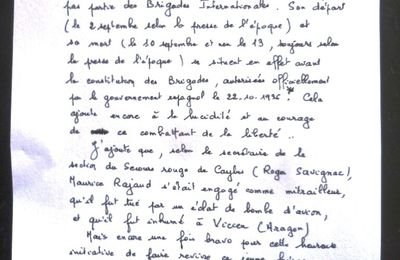 pas partie des Brigades Internationales. Son départ
(le 2 septembre selon la presse de l'époque) et
sa mort (le 10 septembre et non le 13, toujours selon
la presse de l'époque) se situent en effet avant
la constitution des Brigades, autorisée officiellement
par le gouvernement espagnol le 22.10.1936. Cela
ajoute encore à la lucidité et au courage
de ce combattant de la liberté..
J'ajoute que, selon le secrétaire de la
section du Secours rouge de Caylus (Roger Savignac),
Maurice Rajaud s'était engagé comme mitrailleur,
qu'il fut tué par un éclat de bombe d'avion,
et qu'il fut inhumé à Viccen (Aragon)
Mais encore une fois bravo pour cette heureuse
initiative de faire revivre ce jeune